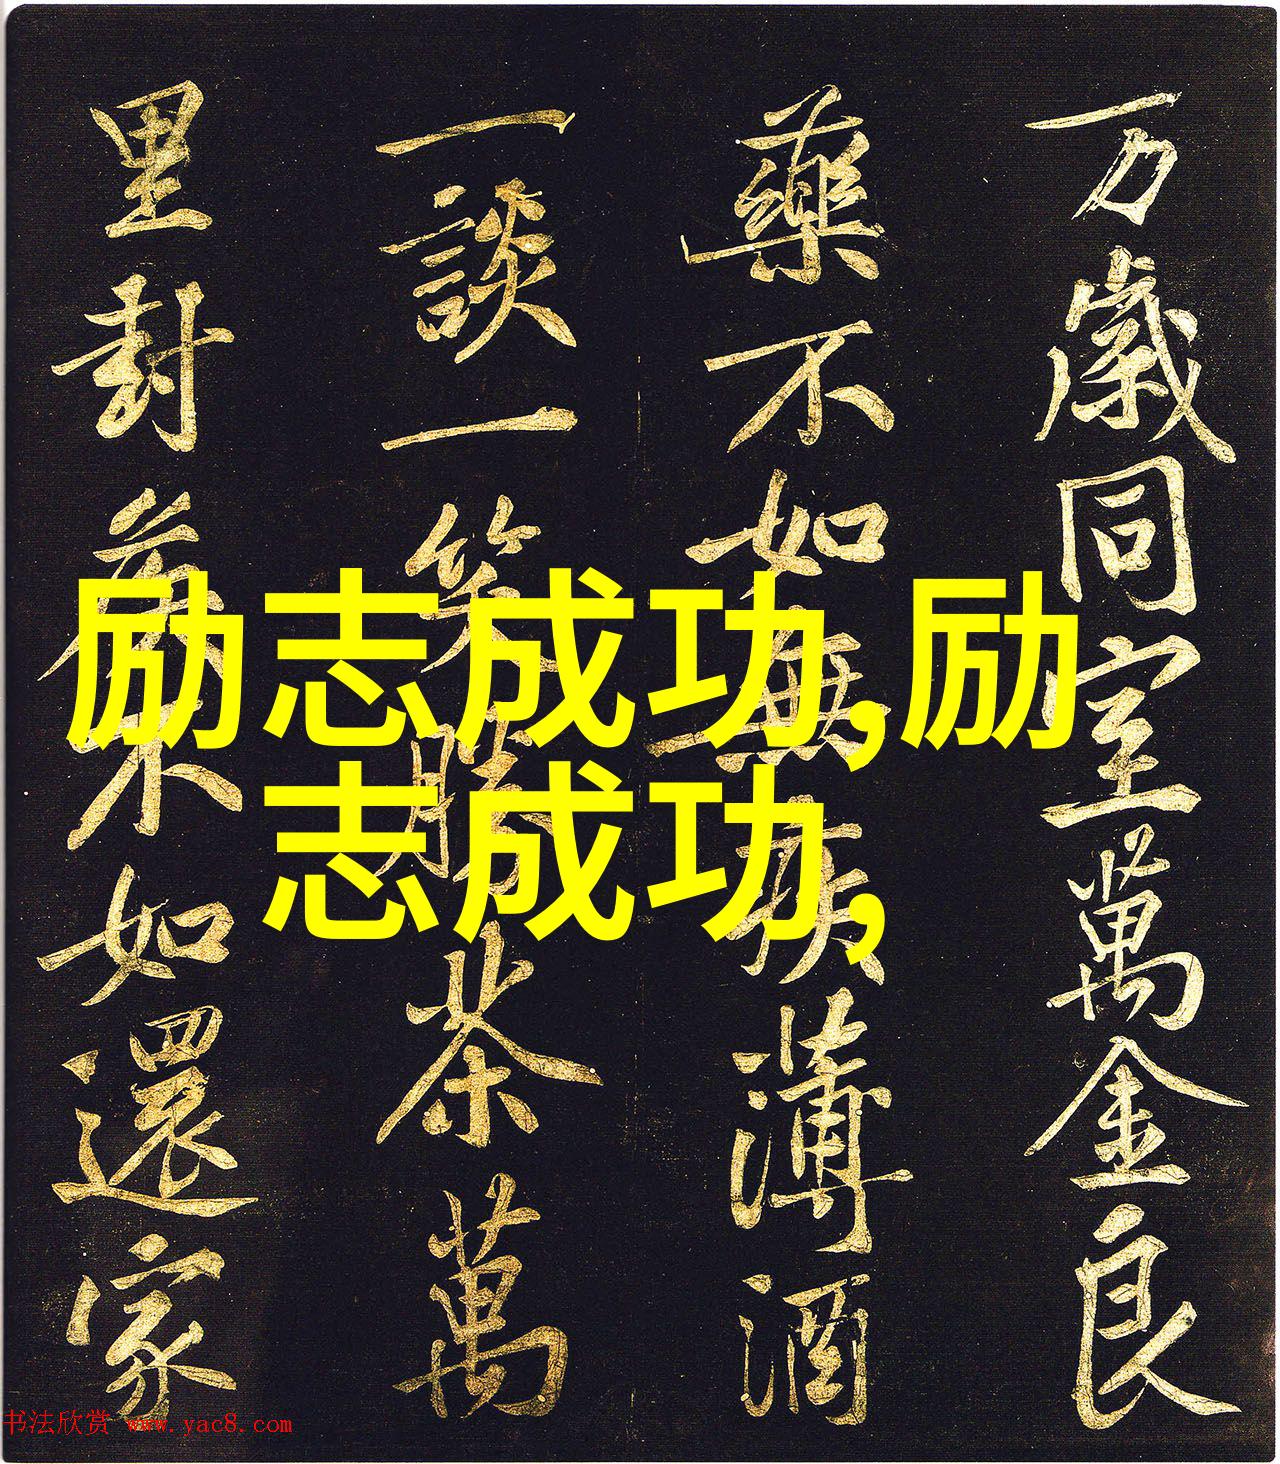 万歲同室萬金良
藥不如無疾薄酒
一談一笑勝茶萬
里封侯不如還家
励志成功,励
志成功,
书法欣赏 www.yac8.com